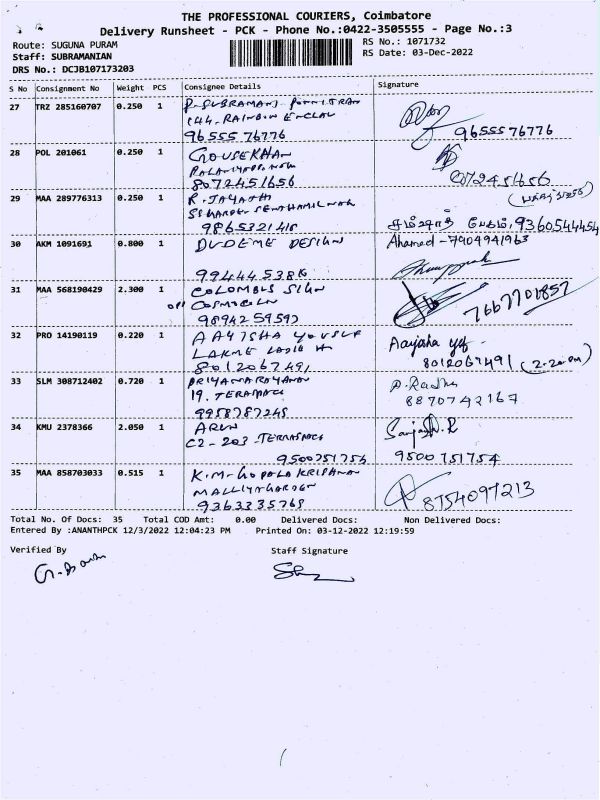 THE PROFESSIONAL COURIERS, Coimbatore
Delivery Runsheet - PCK - Phone No.:0422-3505555 - Page No.:3
Route: SUGUNA PURAM
RS No.: 1071732
Staff: SUBRAMANIAN
RS Date: 03-Dec-2022
DRS No.: DCJB107173203
S No Consignment No Weight PCS Consignee Details Signature
27 TRZ 285160707 0.250 1 P. SUBRAMANI
144. RAINBOW ENCLAV
96555 76776 9655576776
28 POL 201061 0.250 1 GOUSEKHAN
8072451656
29 MAA 289776313 0.250 1 R. JAYATHI
9865321418 சம்ஷாத் பேகம், 9360544454
30 AKM 1091691 0.800 1 DUDEME DESIGN Ahamed - 7904941963
31 MAA 568190429 2.300 1 COLOMBUS SIGN
opp COSMO
9894259593 7667701857
32 PRO 14190119 0.220 1 AAYISHA YOUSUF Aayisha
LAKME
8012067491 8012067491 (2-20 pm)
33 SLM 308712402 0.720 1 PRIYANARAYANAN P. Radha
19. TERRASPACE 8870742167
9958787245
34 KMU 2378366 2.050 1 ARUN Sanjash. R
C2 - 203 - TERRASPACE
9500751754 9500751754
35 MAA 858703033 0.515 1 K.M. GOPALA KRISHNAN
8754097213
9363335768
Total No. Of Docs: 35 Total COD Amt: 0.00 Delivered Docs: Non Delivered Docs:
Entered By :ANANTHPCK 12/3/2022 12:04:23 PM Printed On: 03-12-2022 12:19:59
Verified By Staff Signature